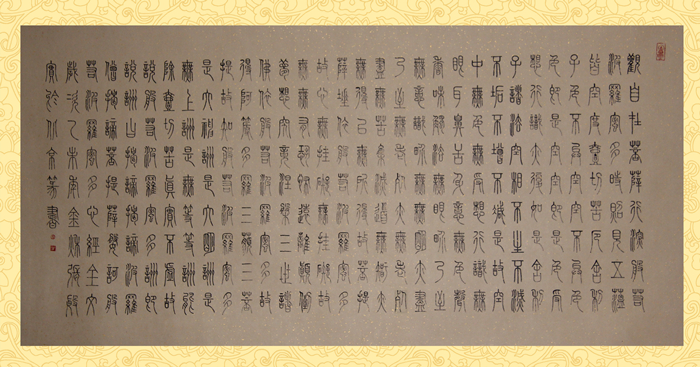 觀自在菩薩行深般若
波羅蜜多時照見五蘊
皆空度一切苦厄舍利
子色不異空空不異色
色即是空空即是色受
想行識亦復如是舍利
子諸法空相不生不滅
不垢不增不減是故空
中無色無受想行識無
眼耳鼻舌身意無色聲
香味觸法無眼界乃至
無意識界無無明亦無
乃至無老死亦無老死
盡無苦集滅道無智亦
無得以無所得故菩提
薩埵依般若波羅蜜多
故心無罣礙無罣礙故
無有恐怖遠離顛倒
夢想究竟涅槃三世諸
佛依般若波羅蜜多故
得阿耨多羅三藐三菩
提故知般若波羅蜜多
是大神咒是大明咒是
無上咒是無等等咒能
除一切苦真實不虛故
說般若波羅蜜多咒即
說咒曰揭諦揭諦波羅
僧揭諦菩提薩婆訶般
若波羅蜜多心經全文
歲次乙未
篆書